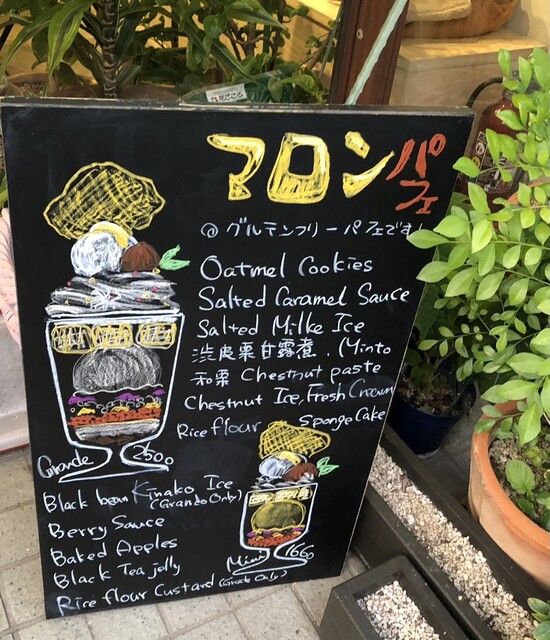 マロンパフェ
@グルテンフリーパフェです!
Oatmel Cookies
Salted Caramel Sauce
Salted Milke Ice
渋皮栗甘露煮. (Minto
和栗 Chestnut paste
Chestnut Ice, Fresh Cream
Rice flour Sponge Cake
Grande 2500
Black bean Kinako Ice
(Grando Only)
Berry Sauce
Baked Apples
Black Tea jelly
Rice flour Custard (Grande Only)
Mini 1660